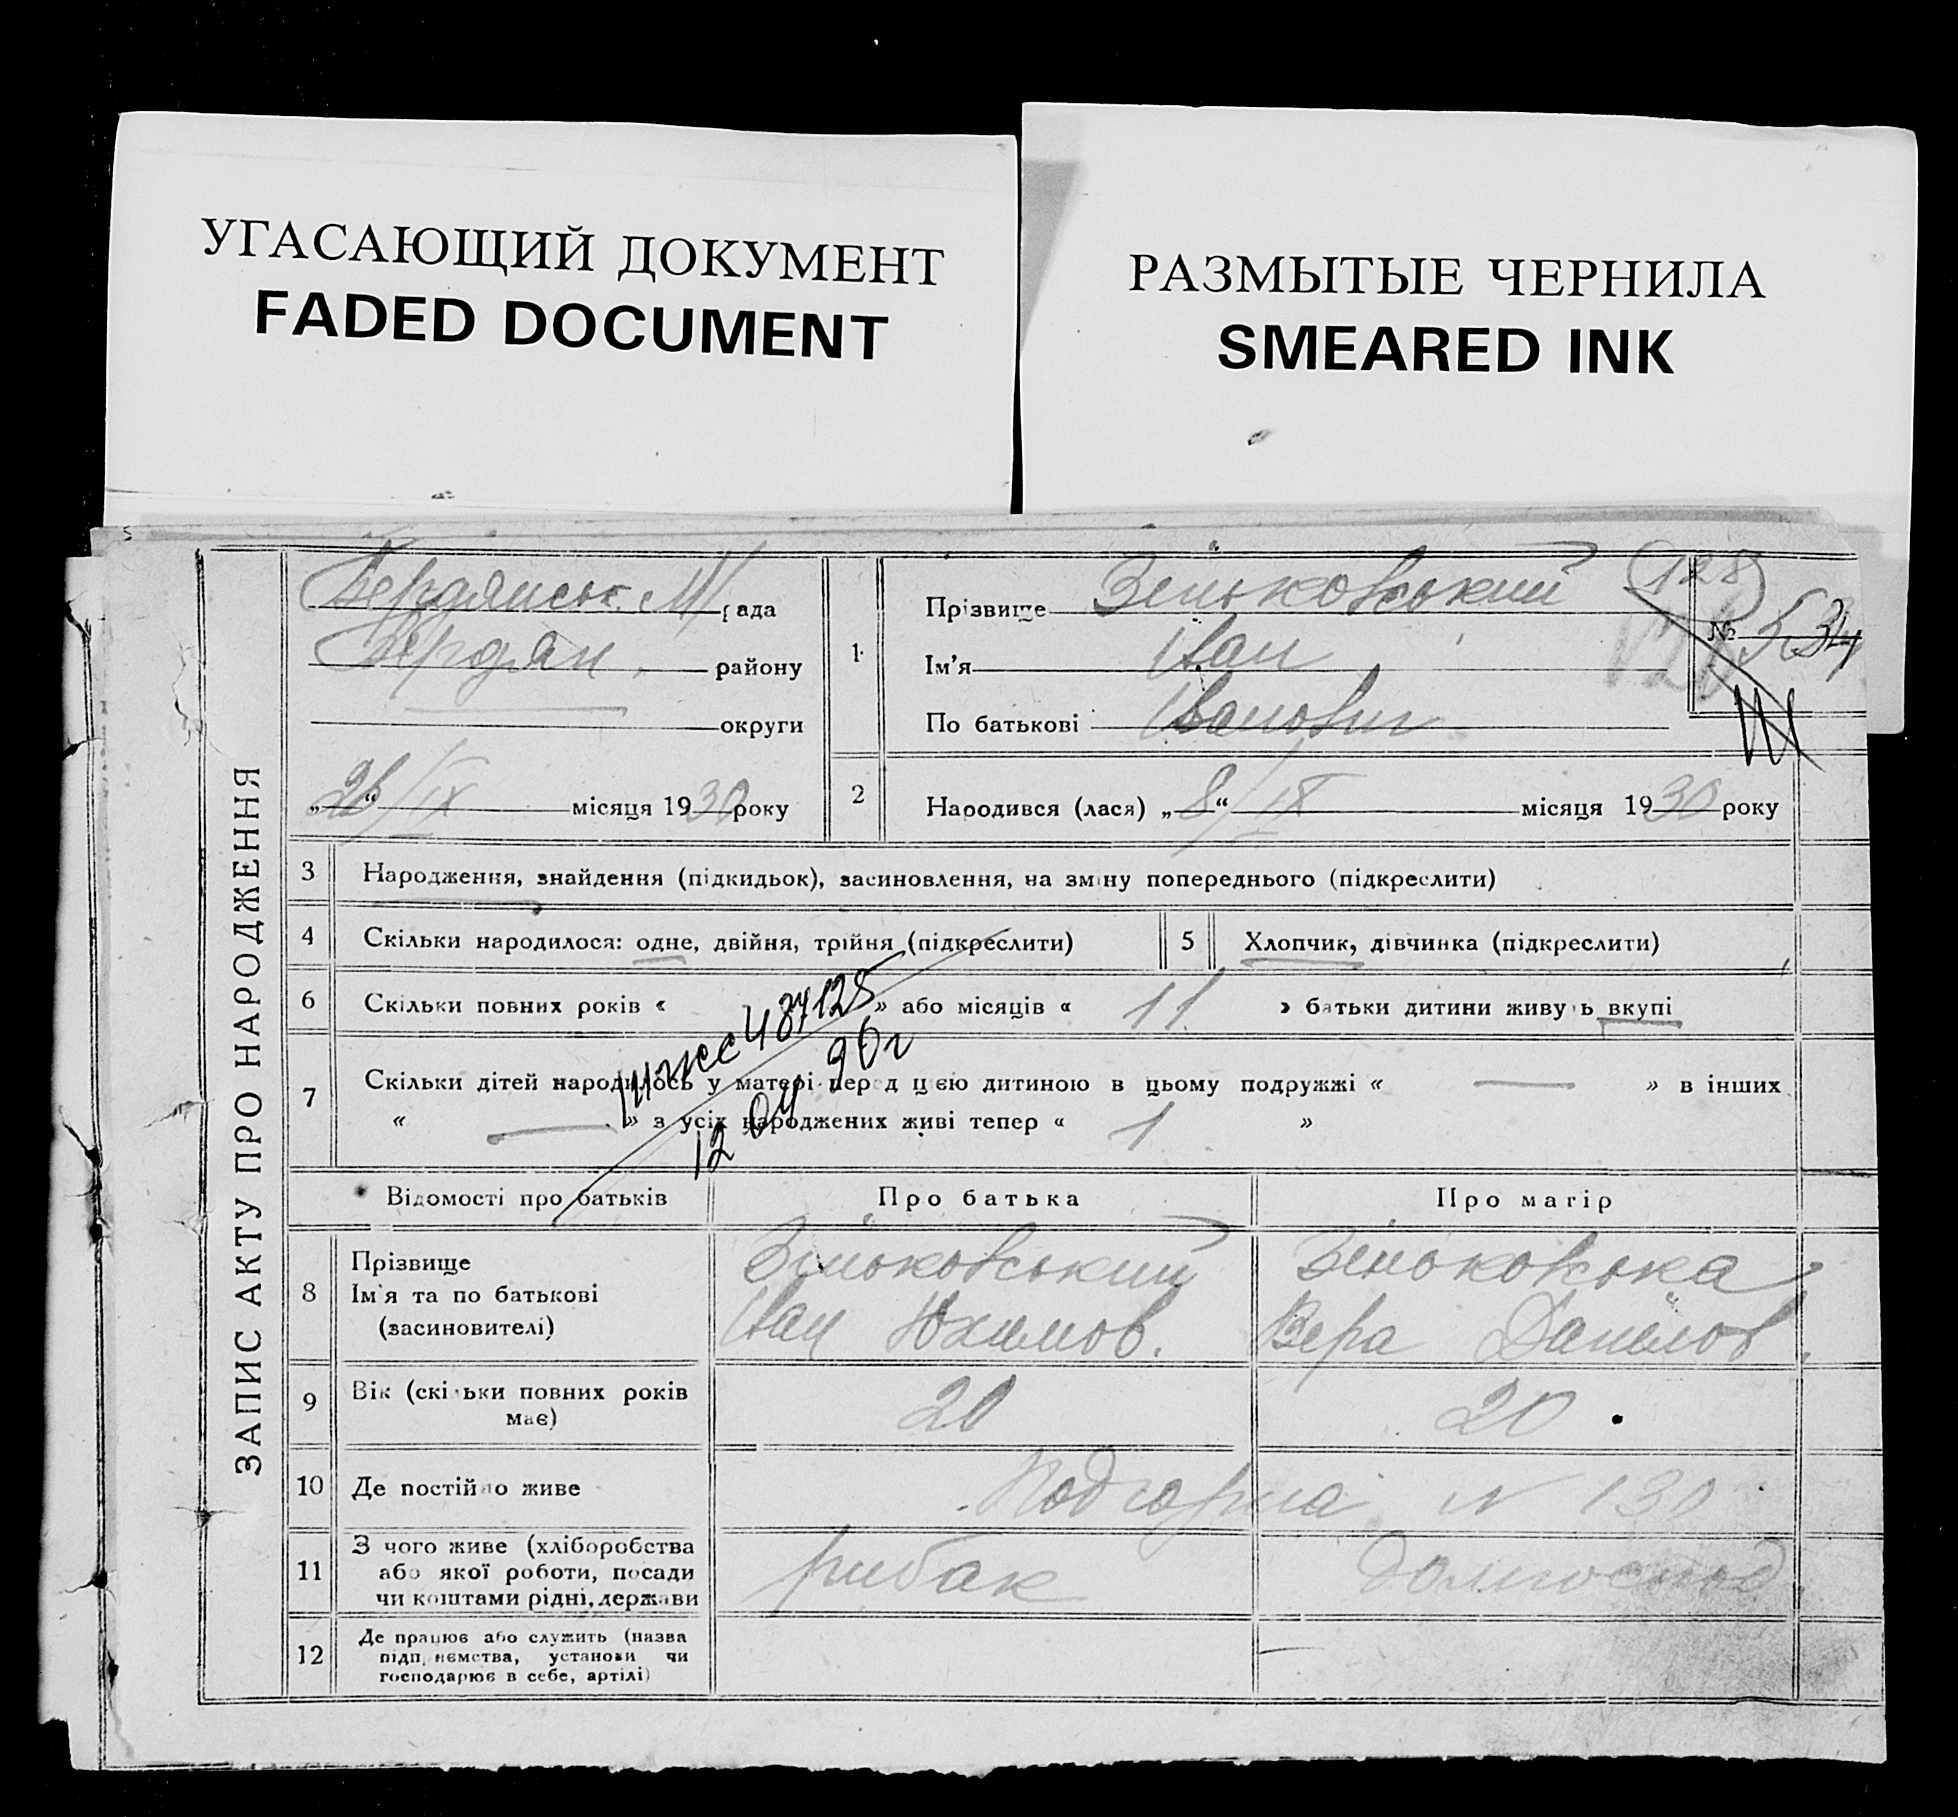 УГАСАЮЩИЙ ДОКУМЕНТ
FADED DOCUMENT
РАЗМЫТЫЕ ЧЕРНИЛА
SMEARED INK
ЗАПИС АКТУ ПРО НАРОДЖЕННЯ
Бердянськ М/ рада
Бердян. району
округи
„26“/IX місяця 1930 року
1 Прізвище Зіньковський
Ім'я Іван
По батькові Іванович
128
№ 534
2 Народився (лася) „8“/IX місяця 1930 року
3 Народження, знайдення (підкидьок), засиновлення, на зміну попереднього (підкреслити)
4 Скільки народилося: одне, двійня, трійня (підкреслити)
5 Хлопчик, дівчинка (підкреслити)
6 Скільки повних років « » або місяців « 11 » батьки дитини живуть вкупі
487125
12 04 90г
7 Скільки дітей народилось у матері перед цією дитиною в цьому подружжі « — » в інших
« — » з усіх народжених живі тепер « 1 »
Відомості про батьків Про батька Про матір
8 Прізвище
Ім'я та по батькові
(засиновителі)
Зіньковський
Іван Юхимов.
Зіньковська
Вера Данилов.
9 Вік (скільки повних років
має)
20 20
10 Де постійно живе Подгорна N 130
11 З чого живе (хліборобства
або якої роботи, посади
чи коштами рідні, держави
рибак
домгоспод.
12 Де працює або служить (назва
підприємства, установи чи
господарює в себе, артілі)